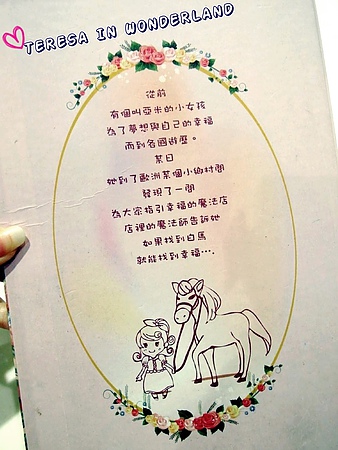 TERESA IN WONDERLAND
從前
有個叫亞米的小女孩
為了夢想與自己的幸福
而到各國遊歷。
某日
她到了歐洲某個小鄉村間
發現了一間
為大家指引幸福的魔法店
店裡的魔法師告訴她
如果找到白馬
就能找到幸福….